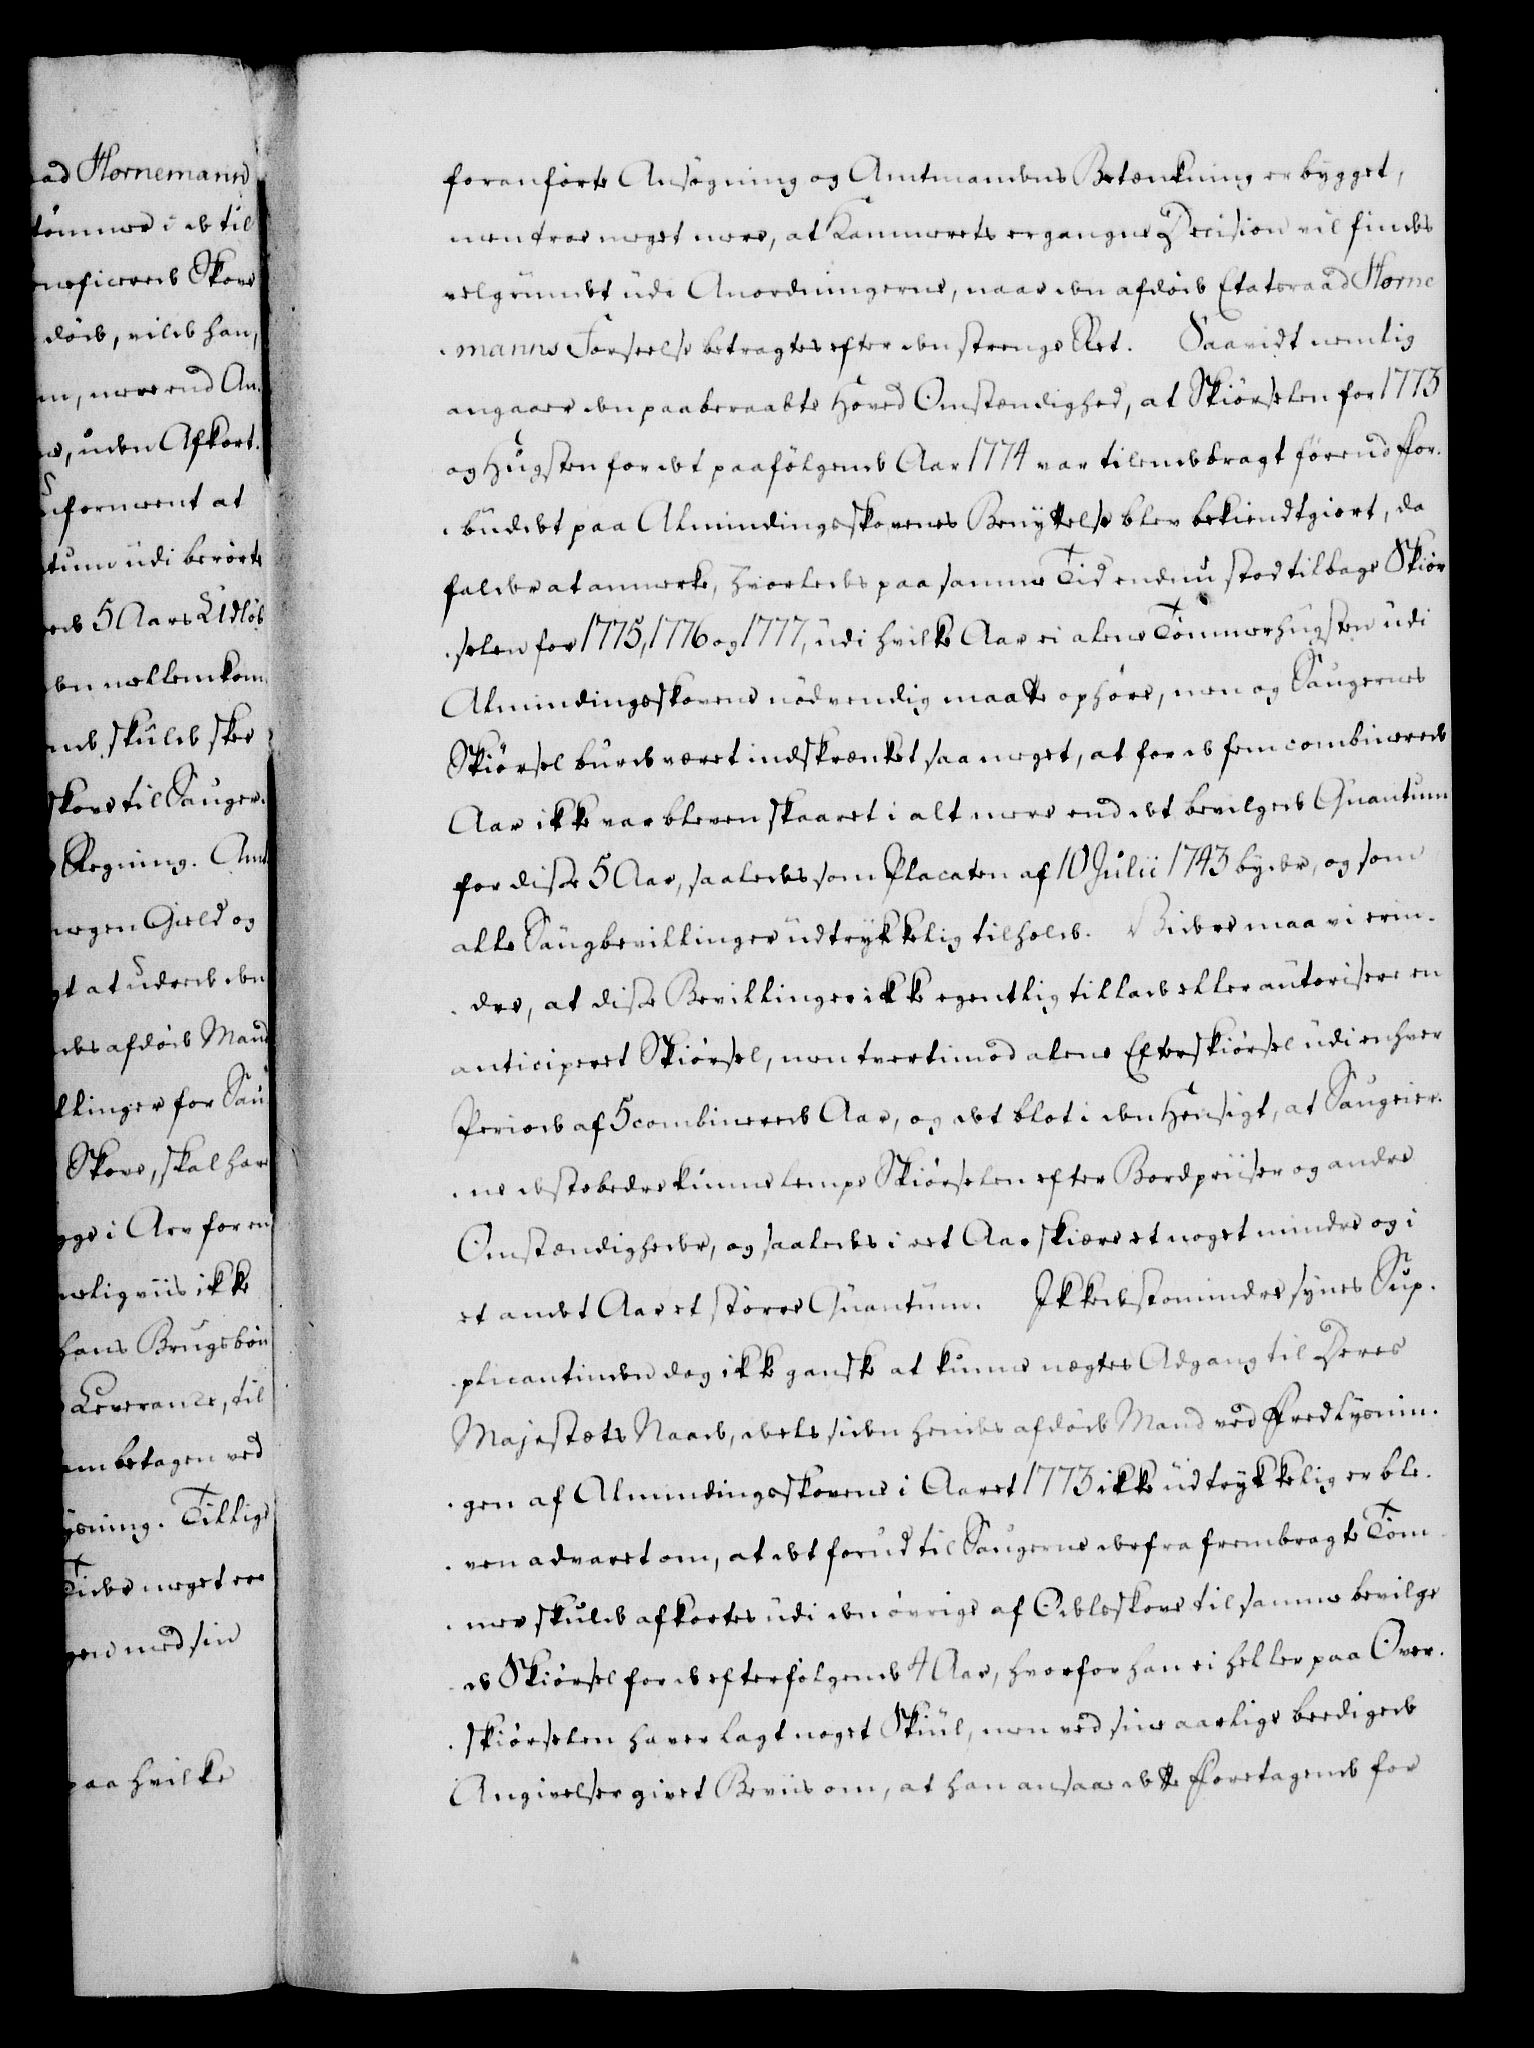 ad Hornemann
tömmer i de til
neficerede Skove
döde, vilde han,
m, mere end An.
e, uden Afkort.
forment at
tum udi berörte
rede 5 Aars Udlöb
den mellemkom
nde skulde skee
skove til Sauger.
Regning. Amt
megen Gield og
gt at udrede den
des afdöde Mand
llinger for Sau
Skove, skal have
gge i Arv for en
meligviis ikke
hans Brugsbön
Leverance, til
em betagen ved
ysning. Tillige
Tider meget er
gen med sin
paa hvilke
foranförte Ansögning og Amtmandens Betænkning er bygget,
men troe meget mere, at Kammerets ergangne Decision vil findes
velgrundet udi Anordningerne, naar den afdöde Etatsraad Horne
manns Forseelse betragtes efter den strenge Ret. Saavidt nemlig
angaaer den paaberaabte Hoved Omstændighed, at Skiörselen for 1773
og Hugsten for det paafölgende Aar 1774 var tilendebragt förend For.
budet paa Almindingsskovenes Benyttelse blev bekiendtgiort, da
falder at anmerke, hvorledes paa samme Tid endnu stod tilbage Skiör
selen for 1775, 1776 og 1777, udi hvilke Aar ei alene Tömmerhugsten udi
Almindingsskovene nödvendig maatte ophöre, men og Saugernes
Skiörsel burde været indskrænket saa meget, at for de fem combinerede
Aar ikke var bleven skaaret i alt mere end det bevilgede Quantum
for disse 5 Aar, saaledes som Placaten af 10 Julii 1743 byder, og som
alle Saugbevillinger udtrykkelig tilholde. Videre maa vi erin.
dre, at disse Bevillinger ikke egentlig tillade eller autorisere en
anticiperet Skiörsel, men tvertimod alene Efterskiörsel udi enhver
Periode af 5 combinerede Aar, og det blot i den Hensigt, at Saugeier.
ne desto bedre kunne lempe Skiörselen efter Bordpriiser og andre
Omstændigheder, og saaledes i eet Aar skiære et noget mindre og i
et andet Aar et större Quantum. Ikke desto mindre synes Sup.
plicantinden dog ikke ganske at kunne nægtes Adgang til Deres
Majestæts Naade, dels siden hendes afdöde Mand ved Fredlysnin.
gen af Almindingsskovene i Aaret 1773 ikke udtrykkelig er ble.
ven advaret om, at det forud til Saugerne derfra frembragte Töm
mer skulde afkortes udi den övrige af Odelsskove til samme bevilge
de Skiörsel for de efterfölgende 4 Aar, hvorfor han ei heller paa Over.
skiörselen haver lagt noget Skiul, men ved sine aarlige beedigede
Angivelser givet Beviis om, at han ansaae dette Foretagende for